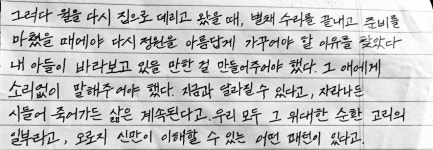 그러다 월을 다시 집으로 데리고 왔을 때, 별채 수리를 끝내고 준비를
마쳤을 때에야 다시 정원을 아름답게 가꾸어야 할 이유를 찾았다
내 아들이 바라보고 있을 만한 걸 만들어주어야 했다. 그 애에게
소리없이 말해주어야 했다. 지금과 달라질 수 있다고, 자라나든
시들어 죽어가든 삶은 계속된다고. 우리 모두 그 위대한 순환 고리의
일부라고, 오로지 신만이 이해할 수 있는 어떤 패턴이 있다고.